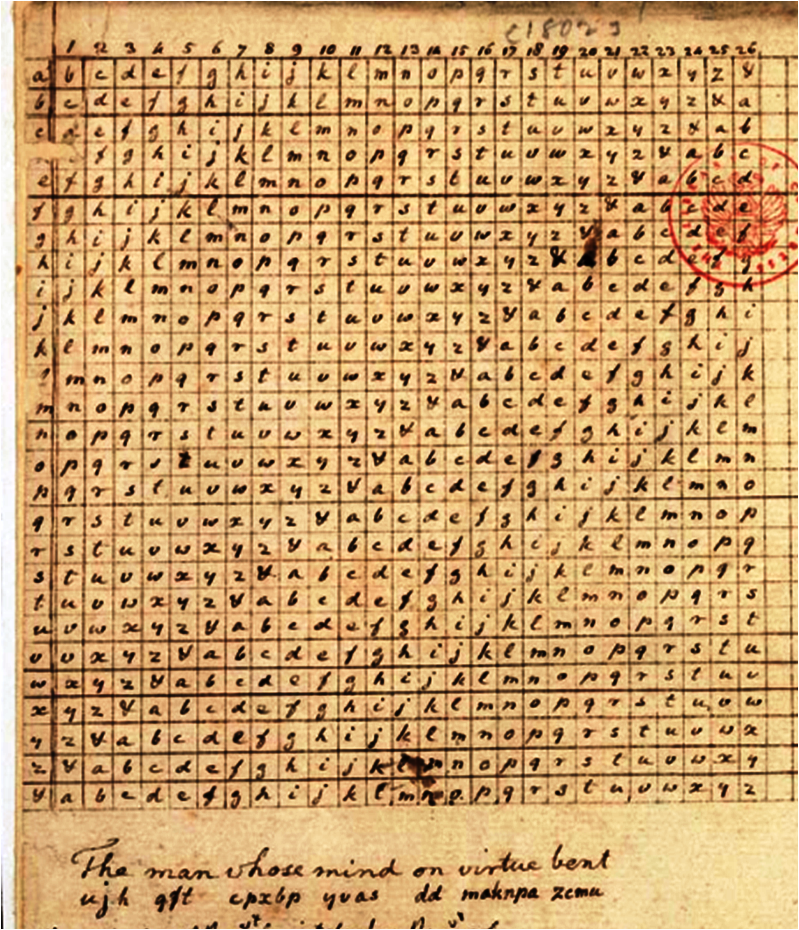 1 2 3 4 5 6 7 8 9 10 11 12 13 14 15 16 17 18 19 20 21 22 23 24 25 26
a b c d e f g h i j k l m n o p q r s t u v w x y z &
b c d e f g h i j k l m n o p q r s t u v w x y z & a
c d e f g h i j k l m n o p q r s t u v w x y z & a b
f g h i j k l m n o p q r s t u v w x y z & a b c
e f g h i j k l m n o p q r s t u v w x y z & a b c d
f g h i j k l m n o p q r s t u v w x y z & a b c d e
g h i j k l m n o p q r s t u v w x y z & a b c d e f
h i j k l m n o p q r s t u v w x y z & b c d e f g
i j k l m n o p q r s t u v w x y z & a b c d e f g h
j k l m n o p q r s t u v w x y z & a b c d e f g h i
k l m n o p q r s t u v w x y z & a b c d e f g h i j
l m n o p q r s t u v w x y z & a b c d e f g h i j k
m n o p q r s t u v w x y z & a b c d e f g h i j k l
n o p q r s t u v w x y z & a b c d e f g h i j k l m
o p q r s t u v w x y z & a b c d e f g h i j k l m n
p q r s t u v w x y z & a b c d e f g h i j k l m n o
q r s t u v w x y z & a b c d e f g h i j k l m n o p
r s t u v w x y z & a b c d e f g h i j k l m n o p q
s t u v w x y z & a b c d e f g h i j k l m n o p q r
t u v w x y z & a b c d e f g h i j k l m n o p q r s
u v w x y z & a b c d e f g h i j k l m n o p q r s t
v v x y z & a b c d e f g h i j k l m n o p q r s t u
w x y z & a b c d e f g h i j k l m n o p q r s t u v
x y z & a b c d e f g h i j k l m n o p q r s t u v w
y z & a b c d e f g h i j k l m n o p q r s t u v w x
z & a b c d e f g h i j k l m n o p q r s t u v w x y
& a b c d e f g h i j k l m n o p q r s t u v w x y z
The man whose mind on virtue bent
ujh qft cpxbp yvas dd maknpa zcmu